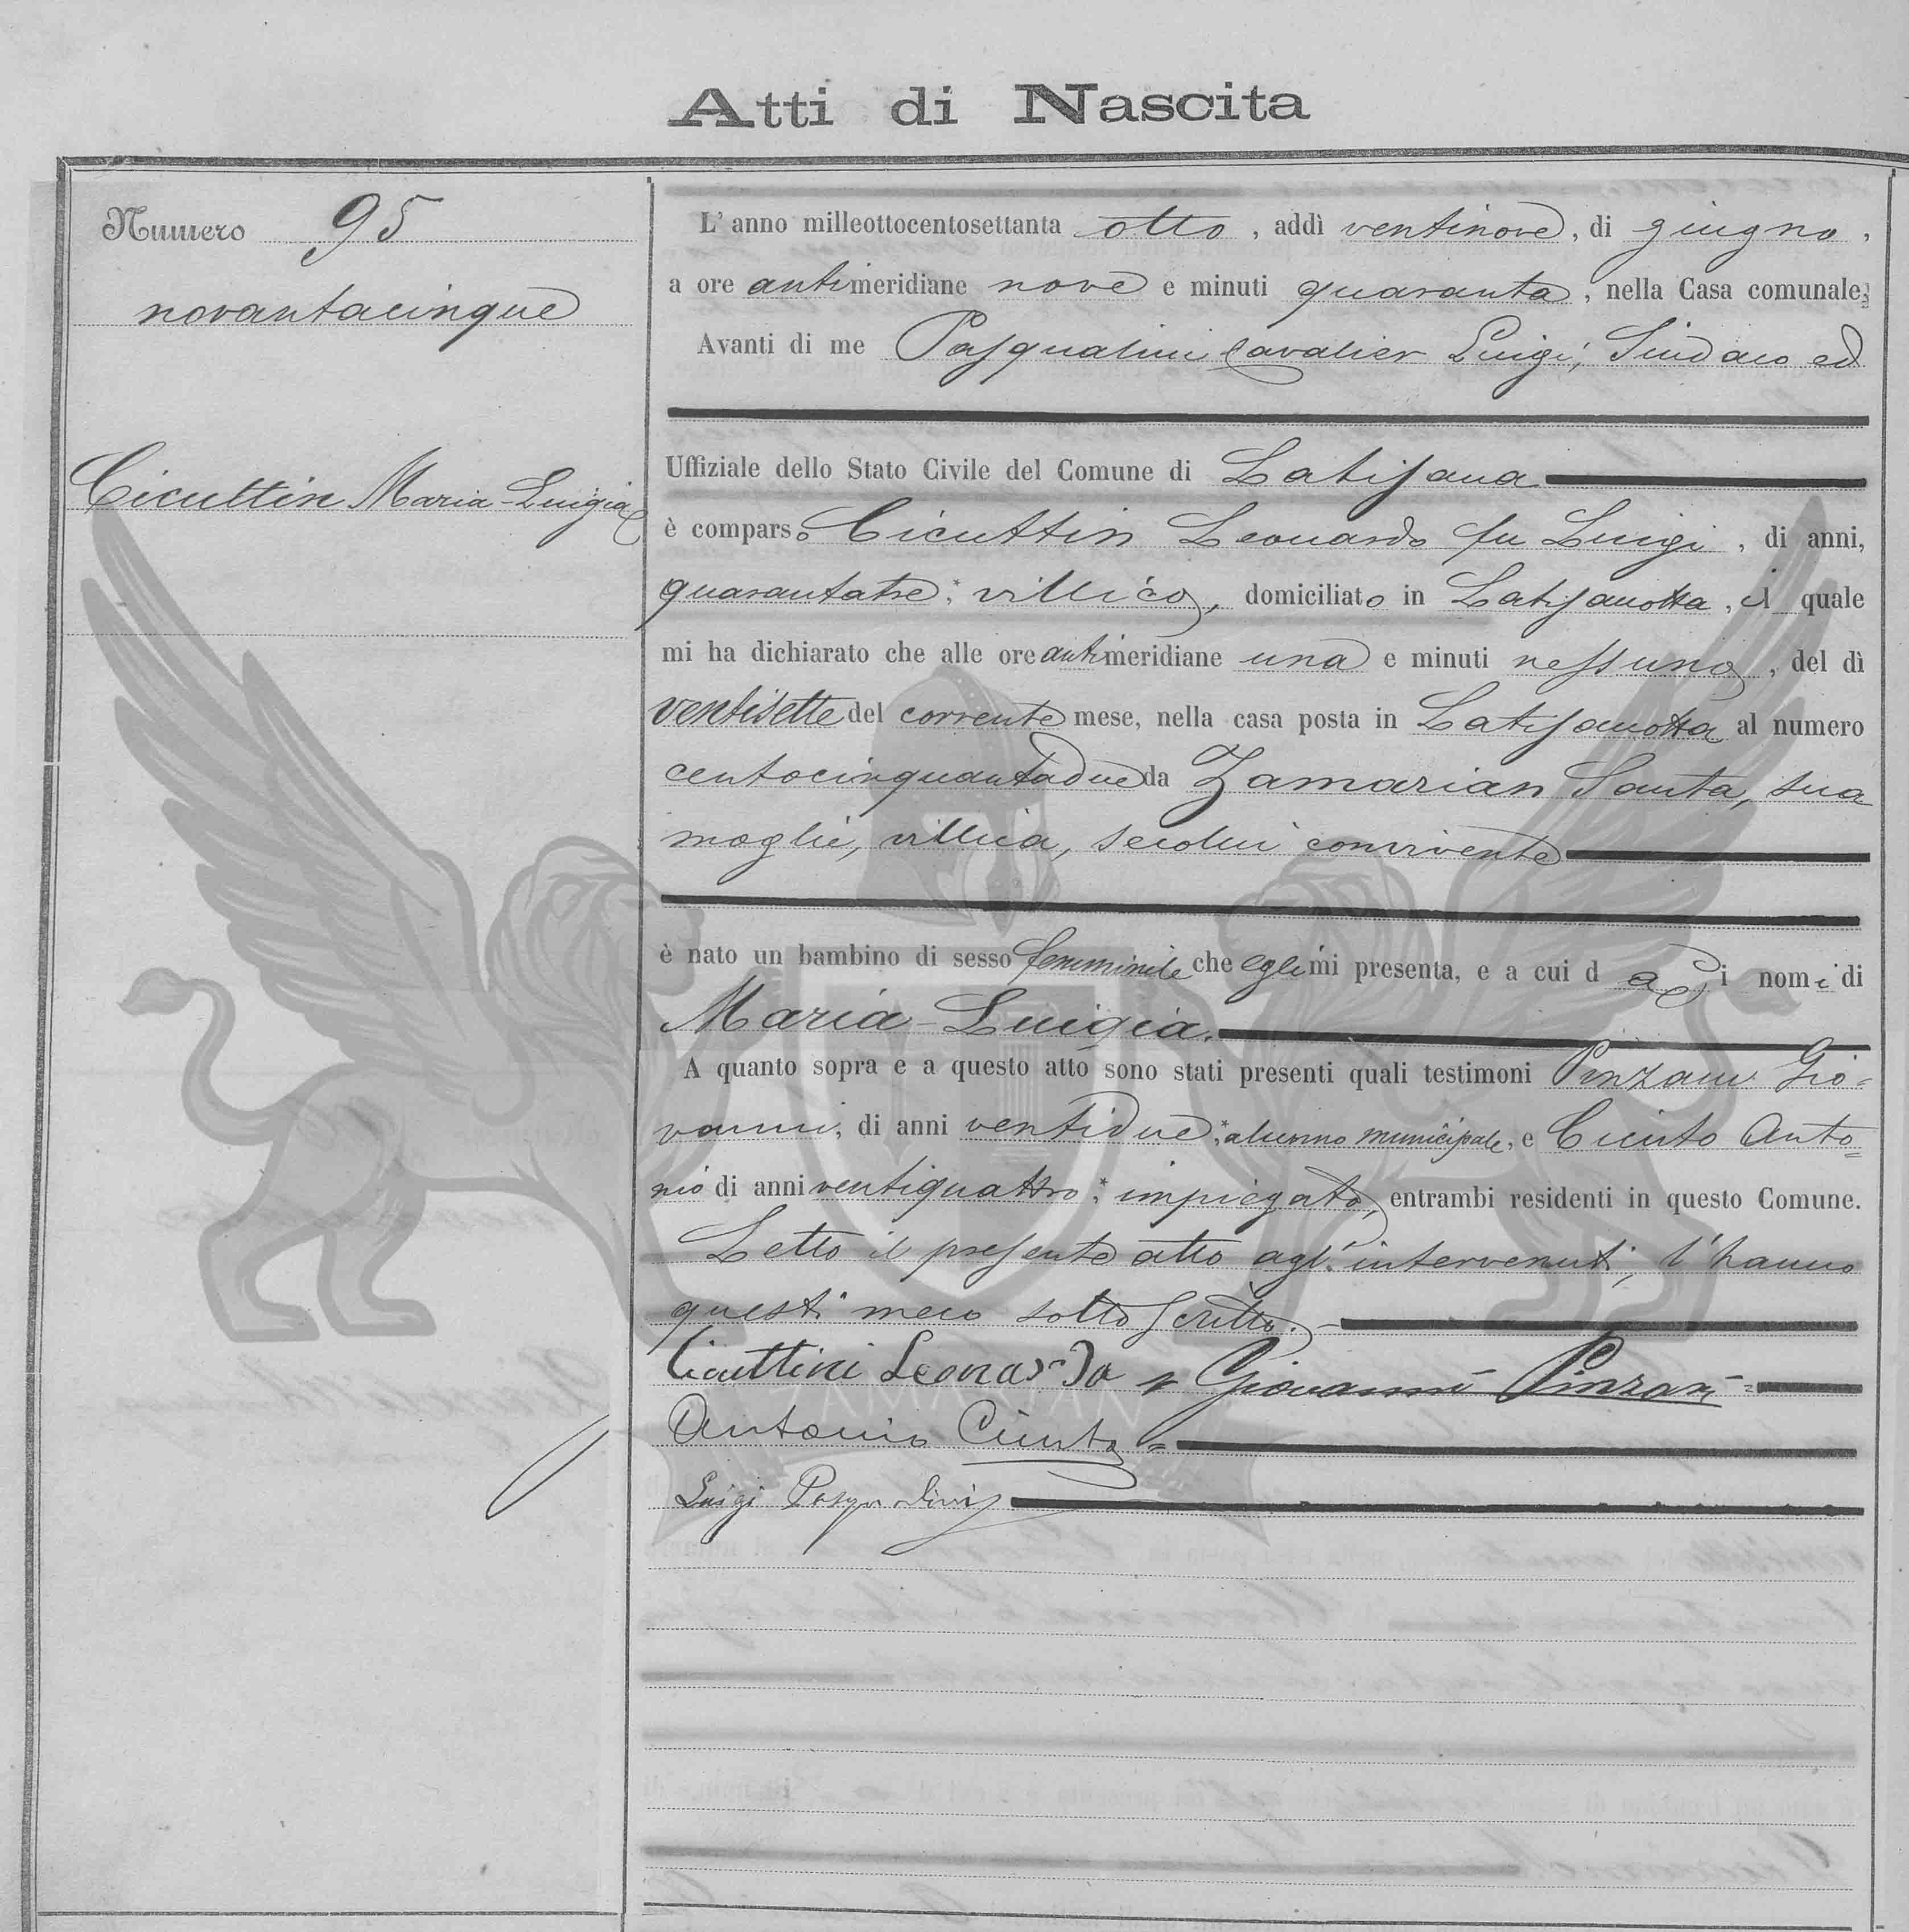 Atti di Nascita
Numero 95
novantacinque
Cicuttin Maria-Luigia
L'anno milleottocentosettanta otto, addì ventinove, di giugno,
a ore antimeridiane nove e minuti quaranta, nella Casa comunale.
Avanti di me Pasqualini Cavalier Luigi, Sindaco ed
Uffiziale dello Stato Civile del Comune di Latisana
è comparso Cicuttin Leonardo fu Luigi, di anni,
quarantatre, villico, domiciliato in Latisanotta, il quale
mi ha dichiarato che alle ore antimeridiane una e minuti nessuno, del dì
ventisette del corrente mese, nella casa posta in Latisanotta al numero
centocinquantadue da Zamarian Santa, sua
moglie, villica, secolui convivente
è nato un bambino di sesso femminile che egli mi presenta, e a cui dà i nomi di
Maria-Luigia.
A quanto sopra e a questo atto sono stati presenti quali testimoni Pinzani Gio-
vanni, di anni ventidue, alunno municipale, e Ciunto Anto=
nio di anni ventiquattro, impiegato, entrambi residenti in questo Comune.
Letto il presente atto agl'intervenuti, l'hanno
questi meco sottoscritto.
Cicuttini Leonardo Giovanni Pinzani
Antonio Ciunto
Luigi Pasqualini